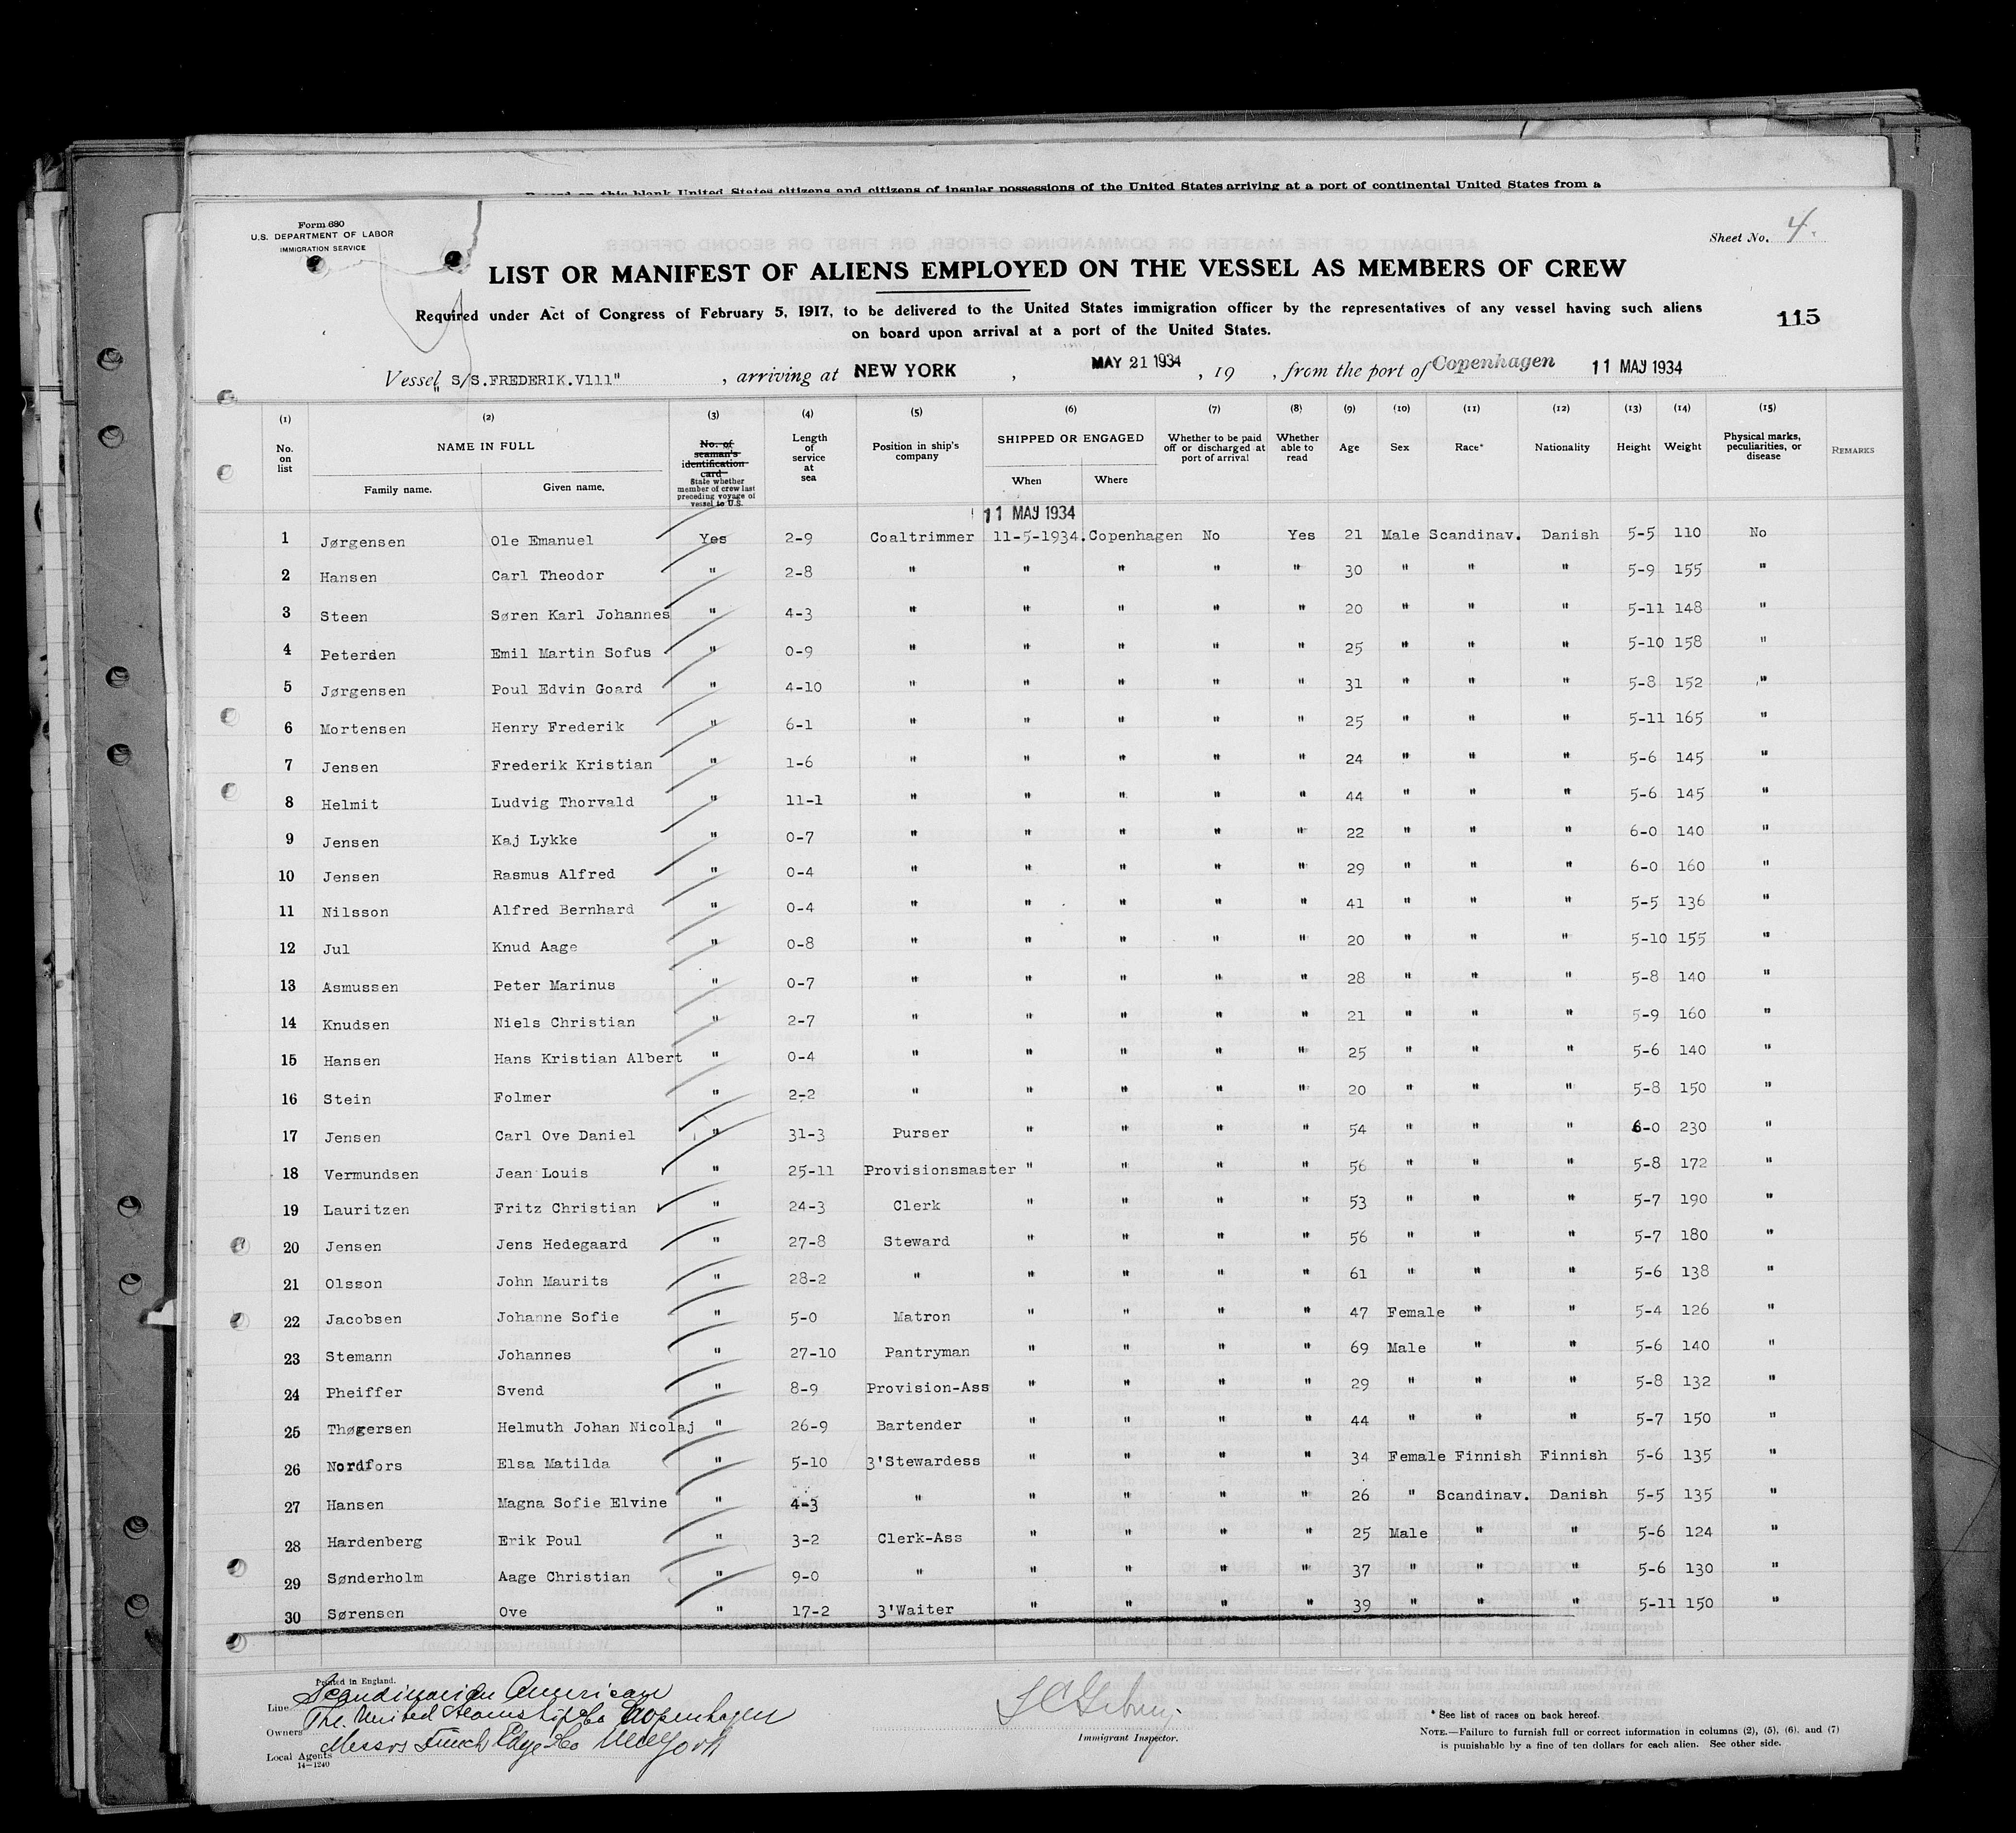 Bound on this blank United States citizens and citizens of insular possessions of the United States arriving at a port of continental United States from a
Form 680
U.S. DEPARTMENT OF LABOR
IMMIGRATION SERVICE
Sheet No. 4.
LIST OR MANIFEST OF ALIENS EMPLOYED ON THE VESSEL AS MEMBERS OF CREW
Required under Act of Congress of February 5, 1917, to be delivered to the United States immigration officer by the representatives of any vessel having such aliens
on board upon arrival at a port of the United States.
115
Vessel "S/S.FREDERIK.V111" , arriving at NEW YORK , MAY 21 1934 , 19 , from the port of Copenhagen 11 MAJ 1934
(1) (2) (3) (4) (5) (6) (7) (8) (9) (10) (11) (12) (13) (14) (15)
No. on list NAME IN FULL Family name. Given name. No. of seaman's identification card State whether member of crew last preceding voyage of vessel to U.S. Length of service at sea Position in ship's company SHIPPED OR ENGAGED When Where Whether to be paid off or discharged at port of arrival Whether able to read Age Sex Race* Nationality Height Weight Physical marks, peculiarities, or disease REMARKS
11 MAJ 1934
1 Jørgensen Ole Emanuel Yes 2-9 Coaltrimmer 11-5-1934. Copenhagen No Yes 21 Male Scandinav. Danish 5-5 110 No
2 Hansen Carl Theodor " 2-8 " " " " " 30 " " " 5-9 155 "
3 Steen Søren Karl Johannes " 4-3 " " " " " 20 " " " 5-11 148 "
4 Petersen Emil Martin Sofus " 0-9 " " " " " 25 " " " 5-10 158 "
5 Jørgensen Poul Edvin Goard " 4-10 " " " " " 31 " " " 5-8 152 "
6 Mortensen Henry Frederik " 6-1 " " " " " 25 " " " 5-11 165 "
7 Jensen Frederik Kristian " 1-6 " " " " " 24 " " " 5-6 145 "
8 Helmit Ludvig Thorvald " 11-1 " " " " " 44 " " " 5-6 145 "
9 Jensen Kaj Lykke " 0-7 " " " " " 22 " " " 6-0 140 "
10 Jensen Rasmus Alfred " 0-4 " " " " " 29 " " " 6-0 160 "
11 Nilsson Alfred Bernhard " 0-4 " " " " " 41 " " " 5-5 136 "
12 Jul Knud Aage " 0-8 " " " " " 20 " " " 5-10 155 "
13 Asmussen Peter Marinus " 0-7 " " " " " 28 " " " 5-8 140 "
14 Knudsen Niels Christian " 2-7 " " " " " 21 " " " 5-9 160 "
15 Hansen Hans Kristian Albert " 0-4 " " " " " 25 " " " 5-6 140 "
16 Stein Folmer " 2-2 " " " " " 20 " " " 5-8 150 "
17 Jensen Carl Ove Daniel " 31-3 Purser " " " " 54 " " " 6-0 230 "
18 Vermundsen Jean Louis " 25-11 Provisionsmaster " " " " 56 " " " 5-8 172 "
19 Lauritzen Fritz Christian " 24-3 Clerk " " " " 53 " " " 5-7 190 "
20 Jensen Jens Hedegaard " 27-8 Steward " " " " 56 " " " 5-7 180 "
21 Olsson John Maurits " 28-2 " " " " " 61 " " " 5-6 138 "
22 Jacobsen Johanne Sofie " 5-0 Matron " " " " 47 Female " " 5-4 126 "
23 Stemann Johannes " 27-10 Pantryman " " " " 69 Male " " 5-6 140 "
24 Pheiffer Svend " 8-9 Provision-Ass " " " " 29 " " " 5-8 132 "
25 Thøgersen Helmuth Johan Nicolaj " 26-9 Bartender " " " " 44 " " " 5-7 150 "
26 Nordfors Elsa Matilda " 5-10 3'Stewardess " " " " 34 Female Finnish Finnish 5-6 135 "
27 Hansen Magna Sofie Elvine " 4-3 " " " " " 26 " Scandinav. Danish 5-5 135 "
28 Hardenberg Erik Poul " 3-2 Clerk-Ass " " " " 25 Male " " 5-6 124 "
29 Sønderholm Aage Christian " 9-0 " " " " " 37 " " " 5-6 130 "
30 Sørensen Ove " 17-2 3'Waiter " " " " 39 " " " 5-11 150 "
Printed in England.
Line Scandinavian American
Owners The United Steamship Co Copenhagen
Local Agents Messrs Funch Edye & Co New York
14—1240
Immigrant Inspector.
* See list of races on back hereof.
NOTE.—Failure to furnish full or correct information in columns (2), (5), (6), and (7)
is punishable by a fine of ten dollars for each alien. See other side.